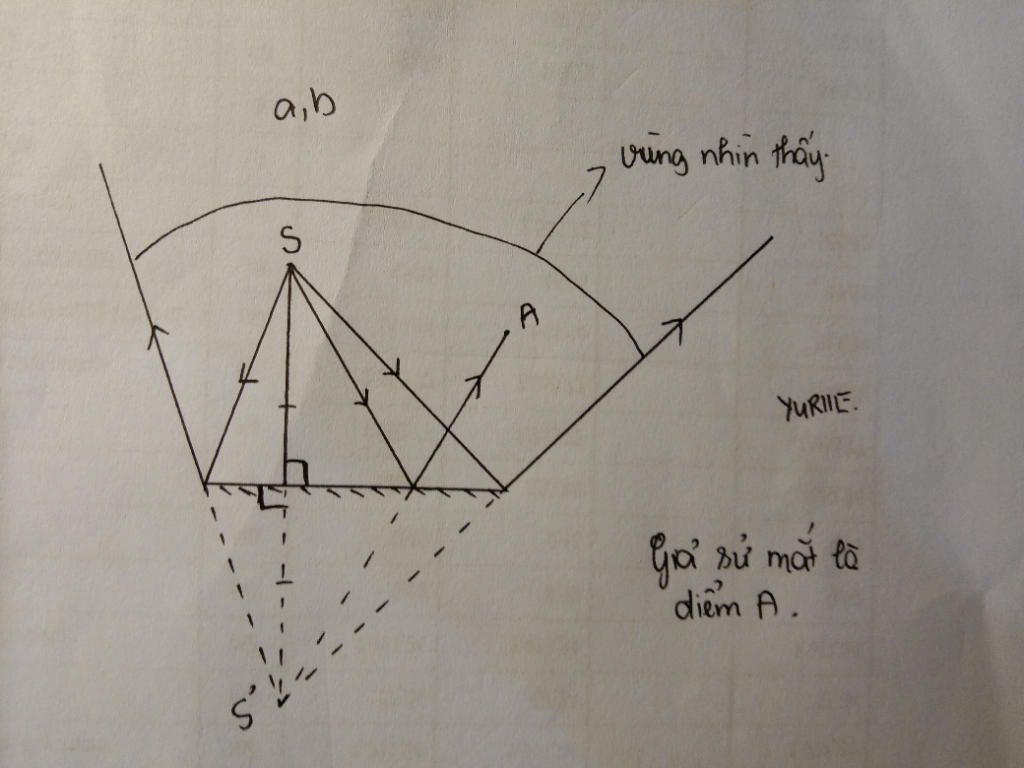 a,b
vùng nhìn thấy.
S
A
YURIIE.
Giả sử mắt là
điểm A.
S'